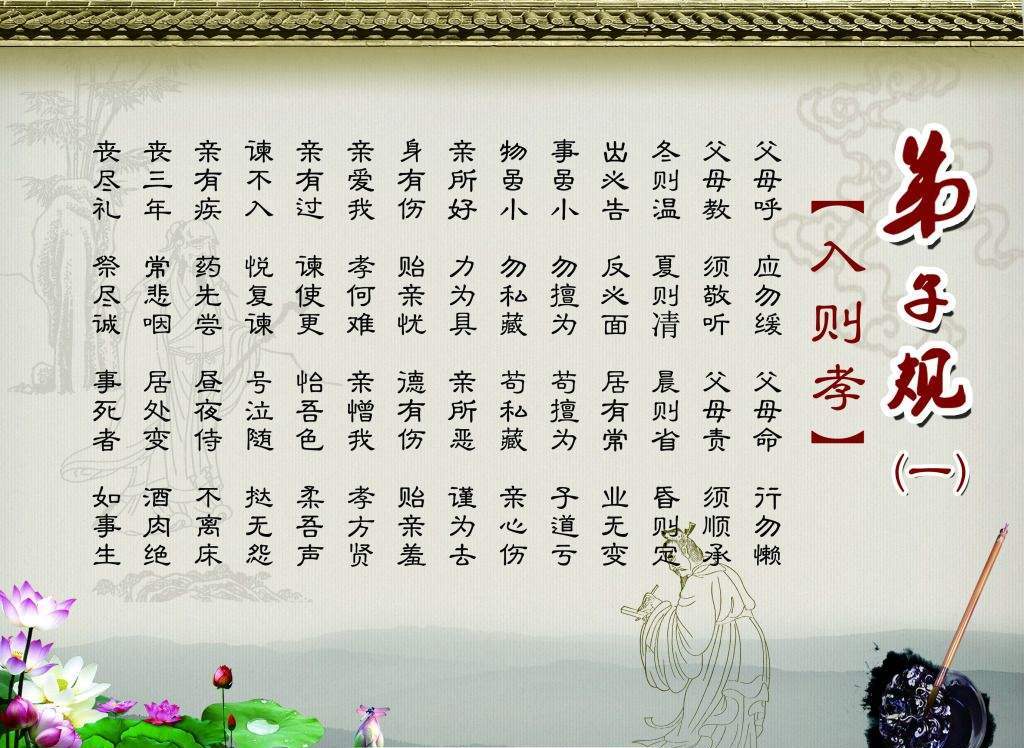 弟子规(一)
【入则孝】
父母呼 应勿缓 父母命 行勿懒
父母教 须敬听 父母责 须顺承
冬则温 夏则凊 晨则省 昏则定
出必告 反必面 居有常 业无变
事虽小 勿擅为 苟擅为 子道亏
物虽小 勿私藏 苟私藏 亲心伤
亲所好 力为具 亲所恶 谨为去
身有伤 贻亲忧 德有伤 贻亲羞
亲爱我 孝何难 亲憎我 孝方贤
亲有过 谏使更 怡吾色 柔吾声
谏不入 悦复谏 号泣随 挞无怨
亲有疾 药先尝 昼夜侍 不离床
丧三年 常悲咽 居处变 酒肉绝
丧尽礼 祭尽诚 事死者 如事生